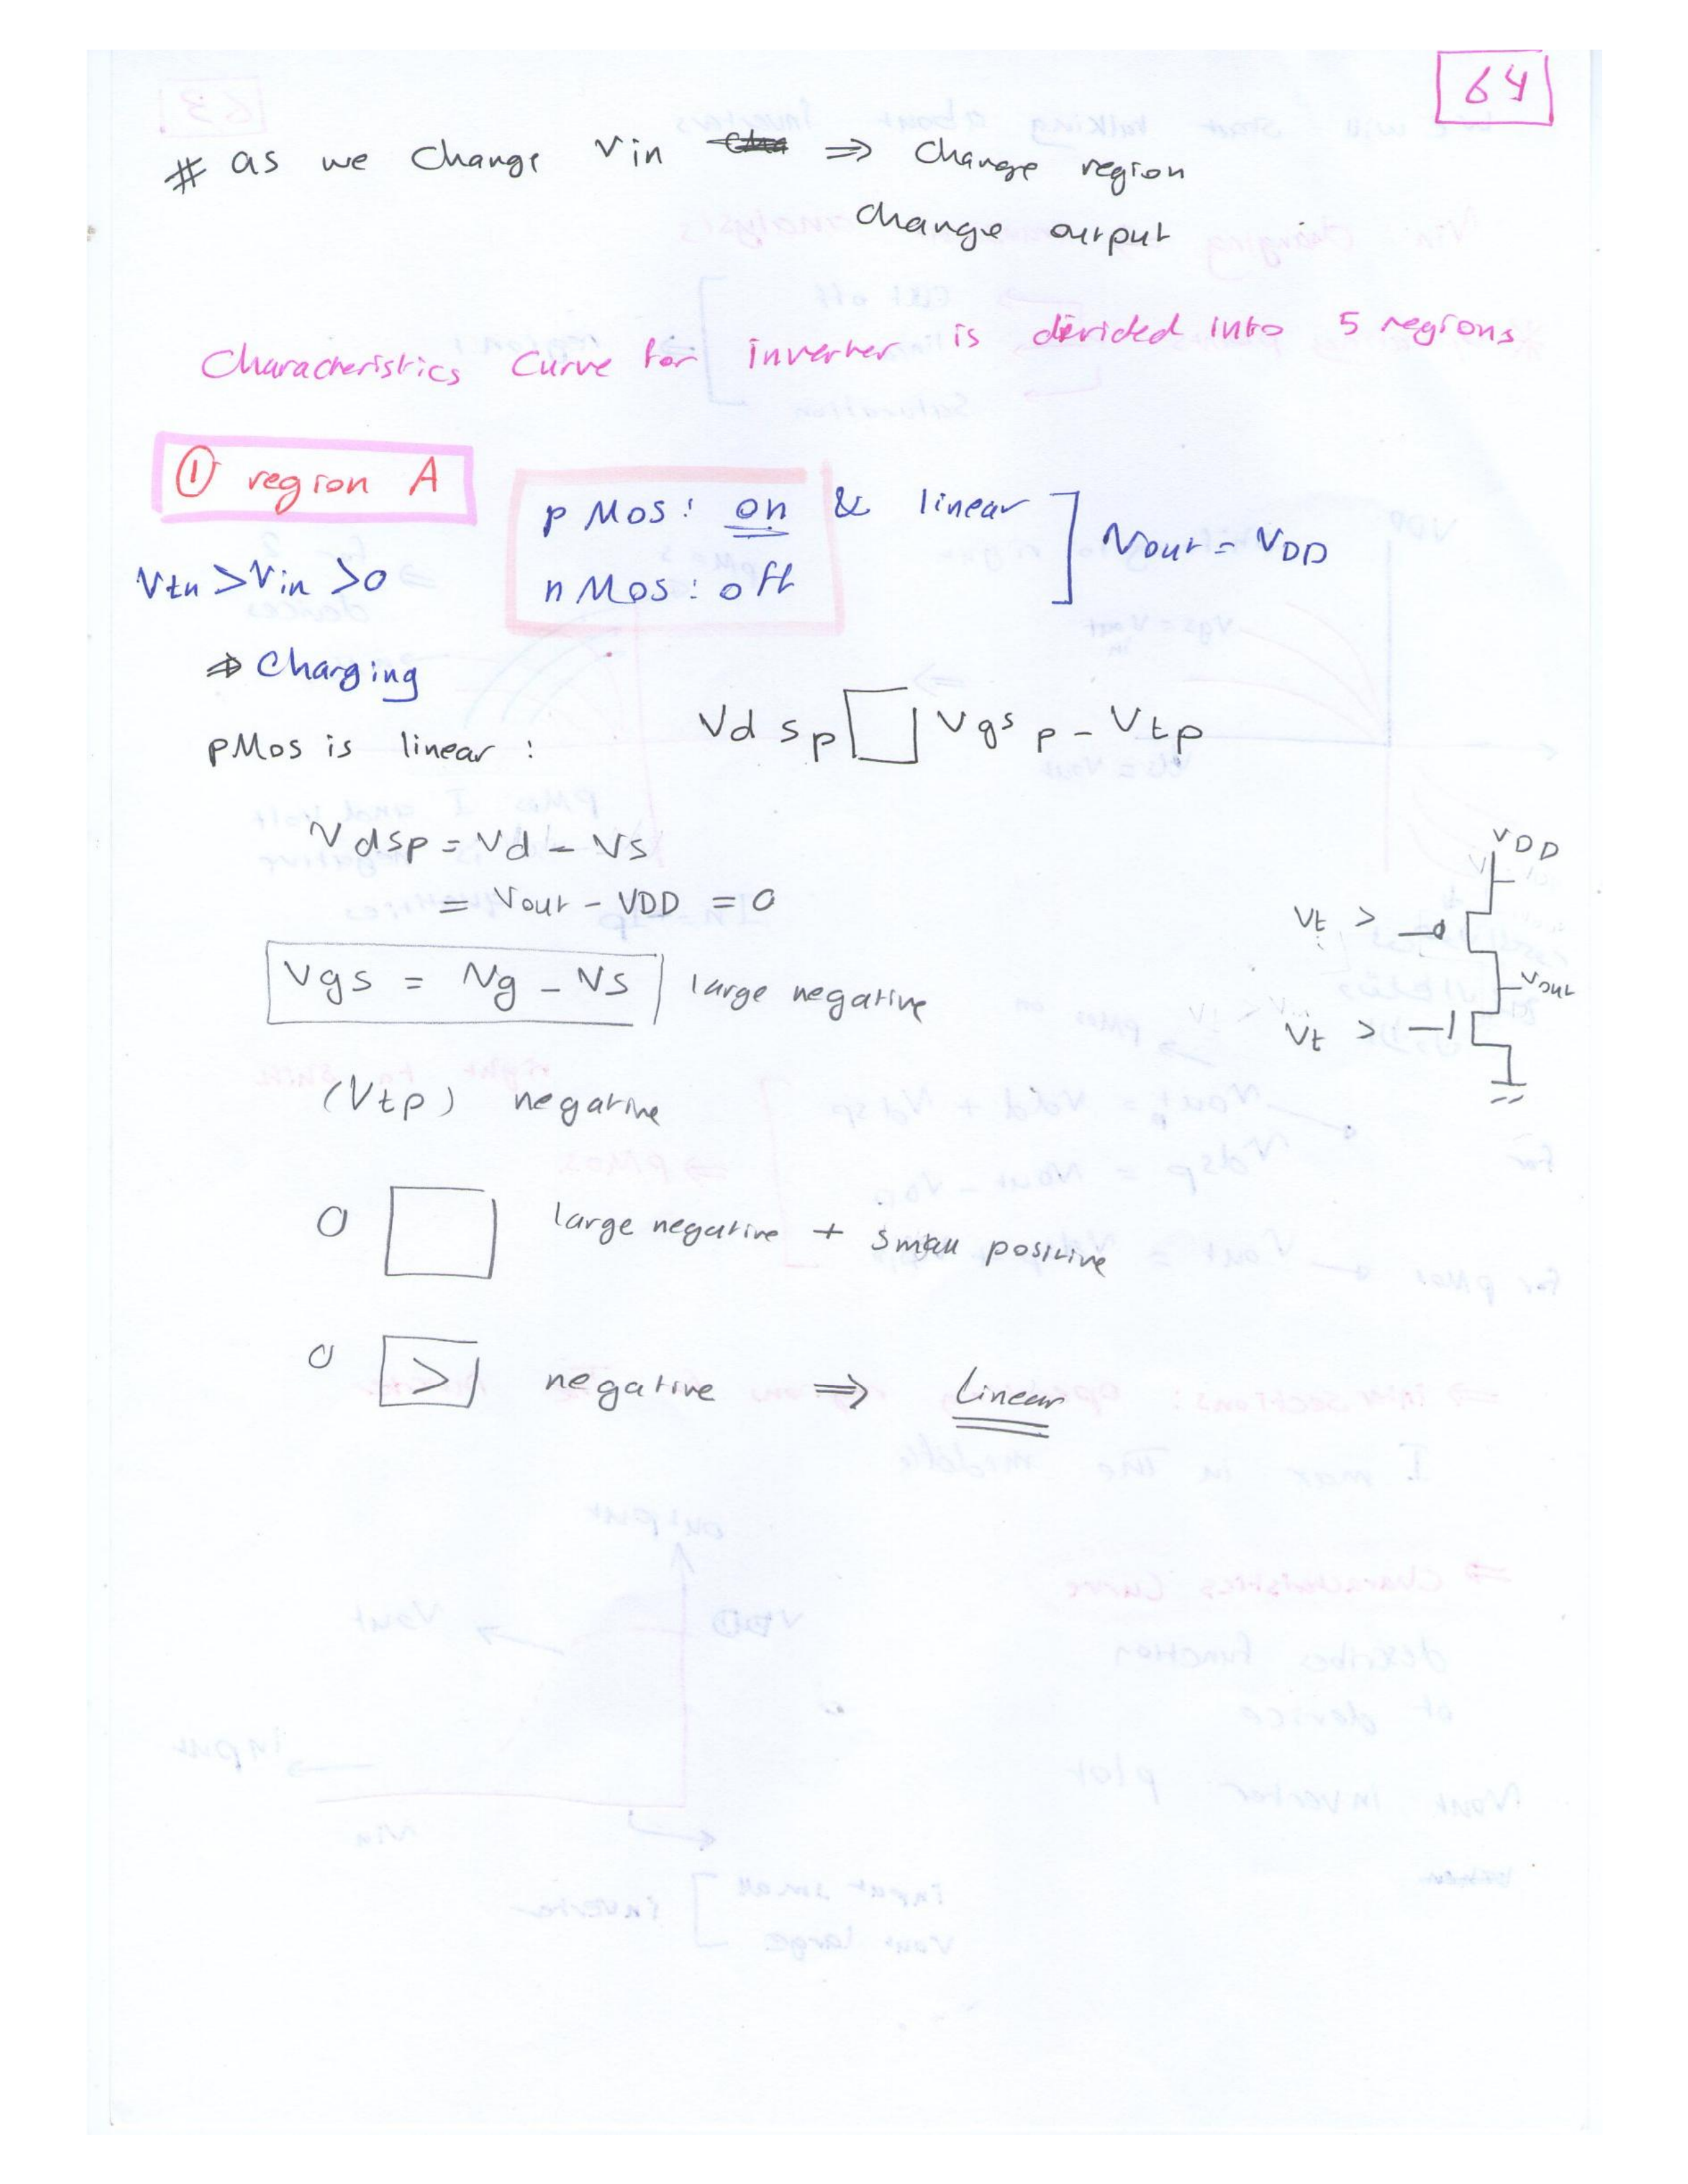 64
# as we change Vin ⇒ change region
change output
Characteristics Curve for inverter is divided into 5 regions
① region A
pMos: on & linear
nMos: off
Vout = VDD
Vtn > Vin > 0
⇒ Charging
pMos is linear :
Vdsp □ Vgsp - Vtp
Vdsp = Vd - Vs
= Vout - VDD = 0
Vgs = Vg - Vs large negative
(Vtp) negative
0 □ large negative + small positive
0 > negative ⇒ Linear
VDD
Vt >
Vout
Vt >